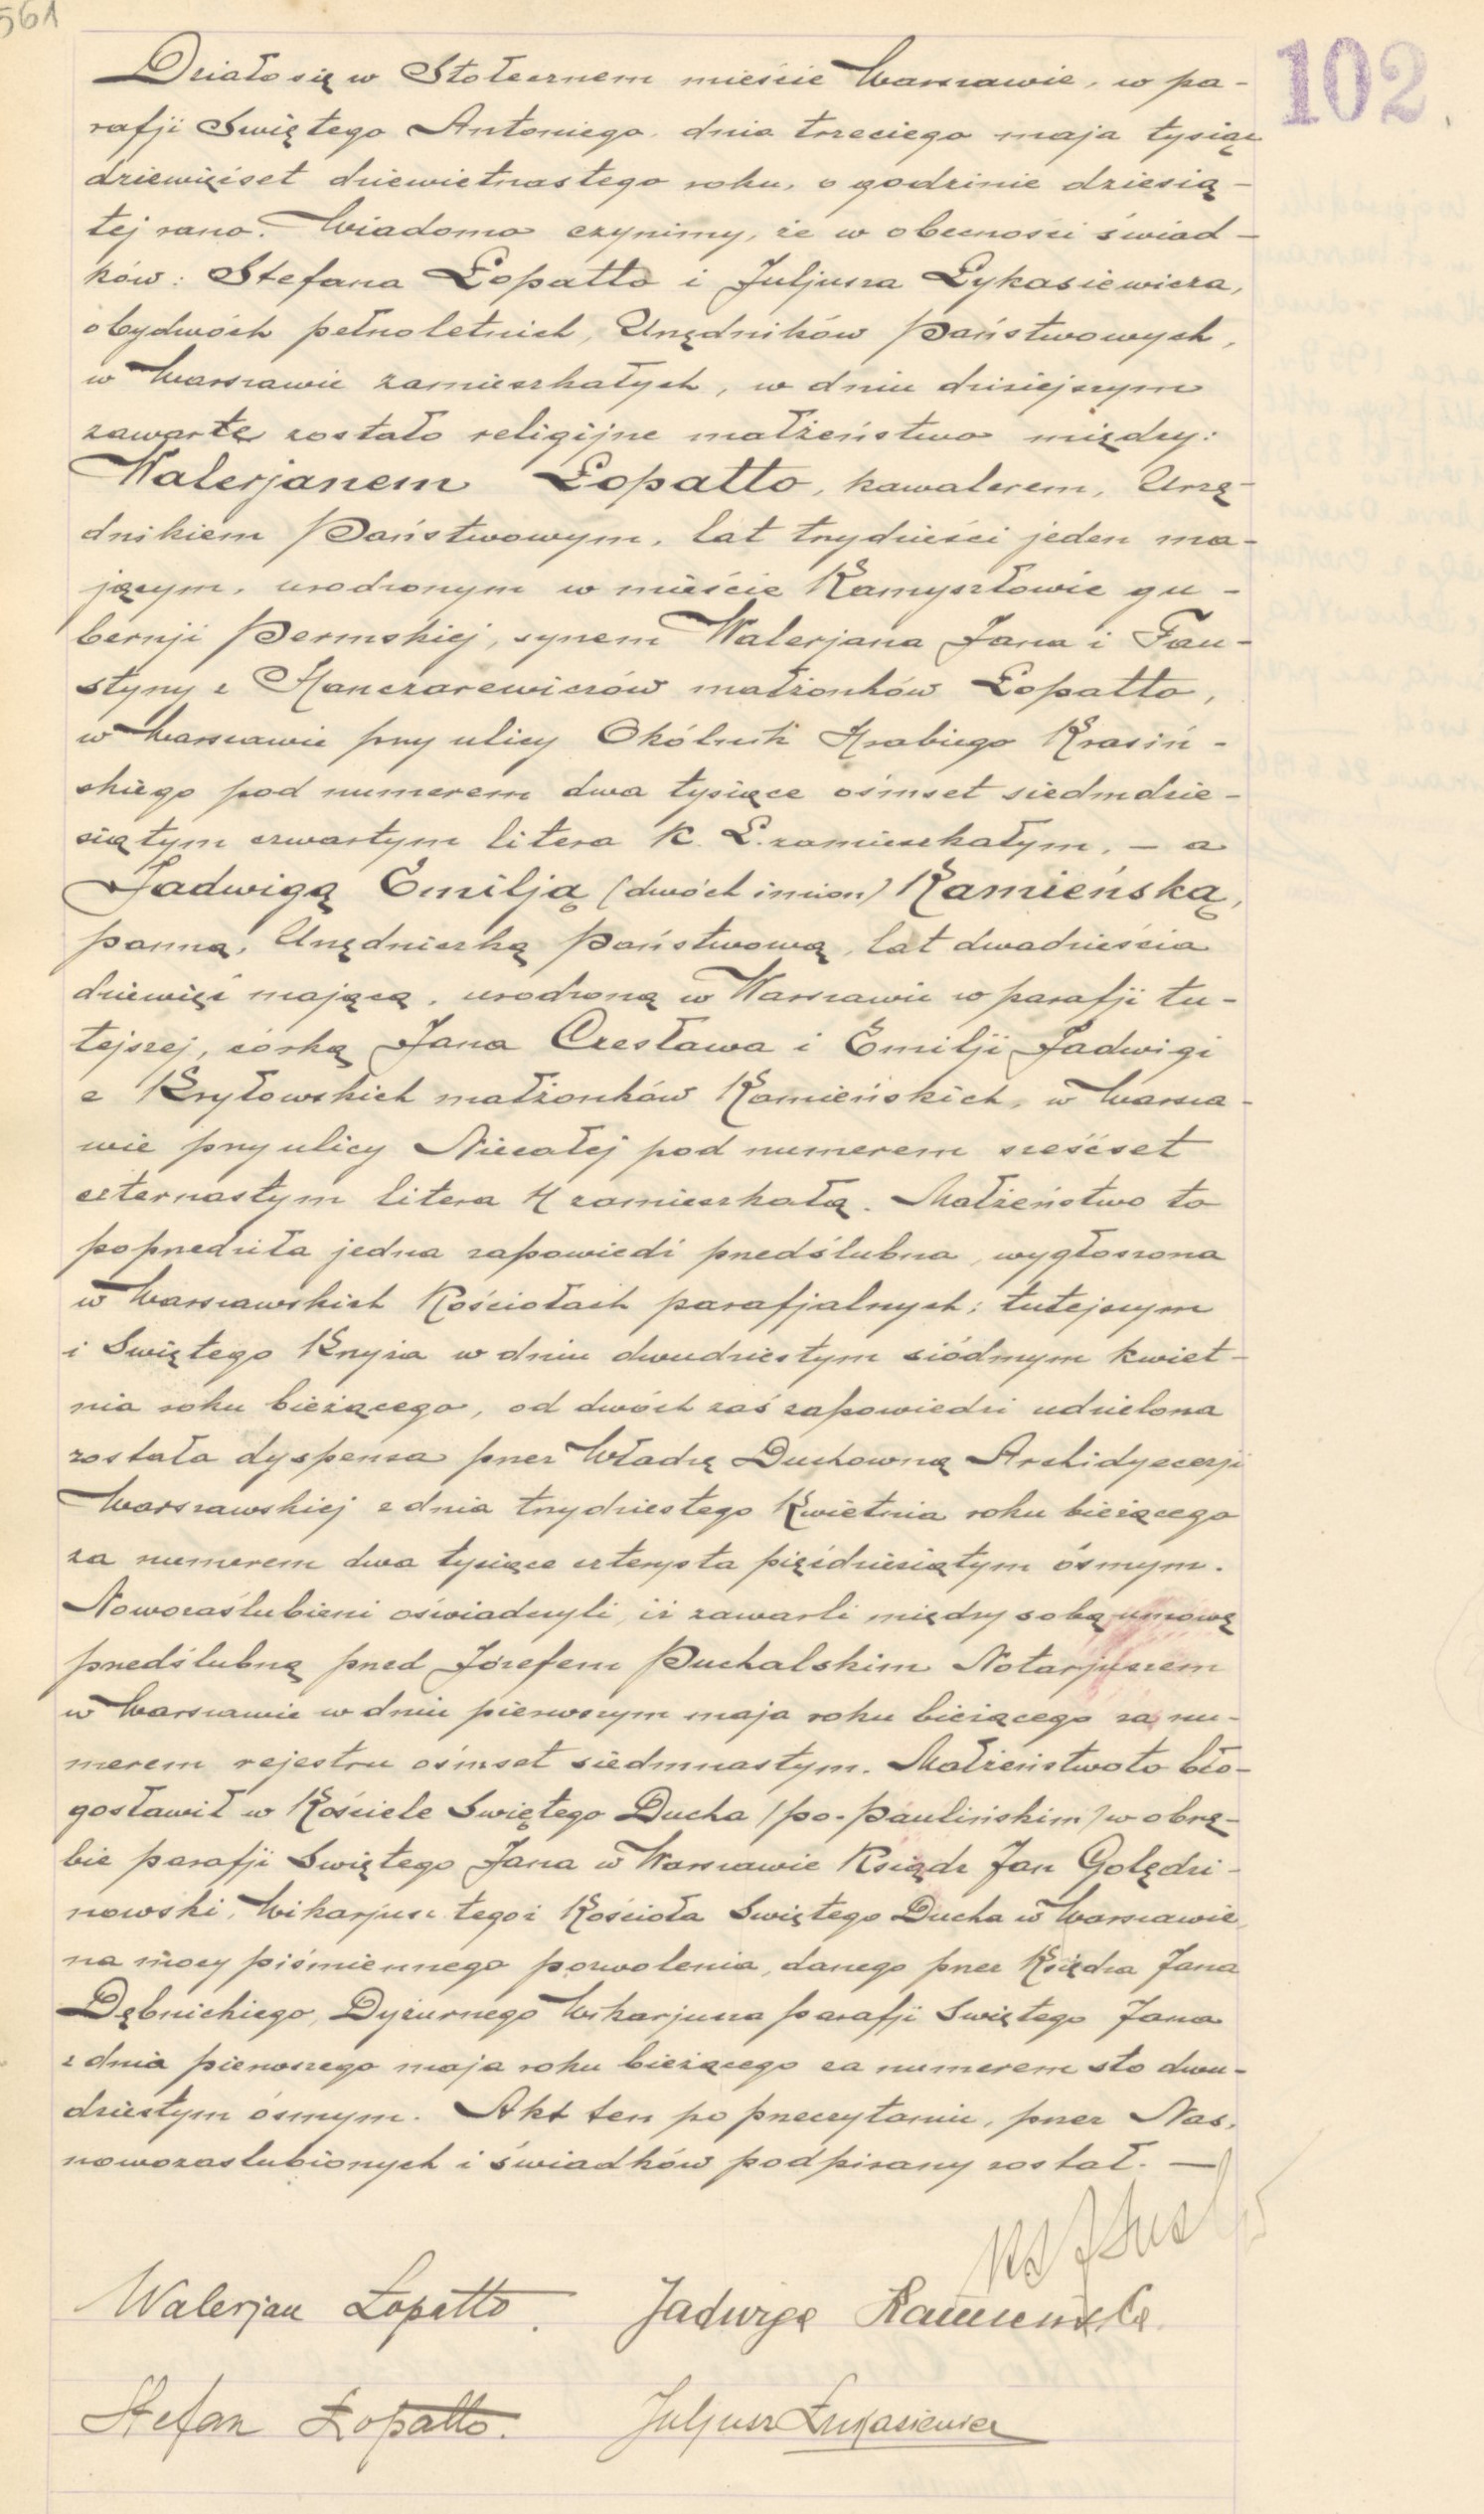 561
102.
Działo się w Stołecznem mieście Warszawie, w pa-
rafji Świętego Antoniego, dnia trzeciego maja tysiąc
dziewięćset dziewietnastego roku, o godzinie dziesią-
tej rano. Wiadomo czynimy, że w obecności świad-
ków: Stefana Łopatto i Juljusza Łykasiewicza,
obydwóch pełnoletnich, Urzędników Państwowych,
w Warszawie zamieszkałych, w dniu dzisiejszym
zawarte zostało religijne małżeństwo między:
Walerjanem Łopatto, kawalerem, Urzę-
dnikiem Państwowym, lat trzydzieści jeden ma-
jącym, urodzonym w mieście Kamyszłowie gu-
bernji Permskiej, synem Walerjana Jana i Fau-
styny z Hanczarewiczów małżonków Łopatto,
w Warszawie przy ulicy Okólnik Hrabiego Krasiń-
skiego pod numerem dwa tysiące ośmset siedmdzie-
siątym czwartym litera K. Ł. zamieszkałym, — a
Jadwigą Emilją (dwóch imion) Kamieńską,
panną, Urzędniczką Państwową, lat dwadzieścia
dziewięć mającą, urodzoną w Warszawie w parafji tu-
tejszej, córką Jana Czesława i Emilji Jadwigi
z Kryłowskich małżonków Kamieńskich, w Warsza-
wie przy ulicy Niecałej pod numerem sześćset
czternastym litera H zamieszkałą. Małżeństwo to
poprzedziła jedna zapowiedź przedślubna, wygłoszona
w Warszawskich Kościołach parafjalnych; tutejszym
i Świętego Krzyża w dniu dwudziestym siódmym kwiet-
nia roku bieżącego, od dwóch zaś zapowiedzi udzielona
została dyspensa przez Władzę Duchowną Archidyecezji
Warszawskiej z dnia trzydziestego Kwietnia roku bieżącego
za numerem dwa tysiące czterysta pięćdziesiątym ósmym.
Nowozaślubieni oświadczyli, iż zawarli między sobą umowę
przedślubną przed Józefem Puchalskim Notarjuszem
w Warszawie w dniu pierwszym maja roku bieżącego za nu-
merem rejestru ośmset siedmnastym. Małżeństwo to bło-
gosławił w Kościele Świętego Ducha (po-paulińskim) w obrę-
bie parafji Świętego Jana w Warszawie Ksiądz Jan Golędzi-
nowski, Wikarjusz tegoż Kościoła Świętego Ducha w Warszawie,
na mocy piśmiennego pozwolenia, danego przez Księdza Jana
Dębnickiego, Dyżurnego Wikarjusza parafji Świętego Jana
z dnia pierwszego maja roku bieżącego za numerem sto dwu-
dziestym ósmym. Akt ten po przeczytaniu, przez Nas,
nowozaslubionych i świadków podpisany został. —
Walerjan Łopatto. Jadwiga Kamieńska.
Stefan Łopatto. Juljusz Łukasiewicz